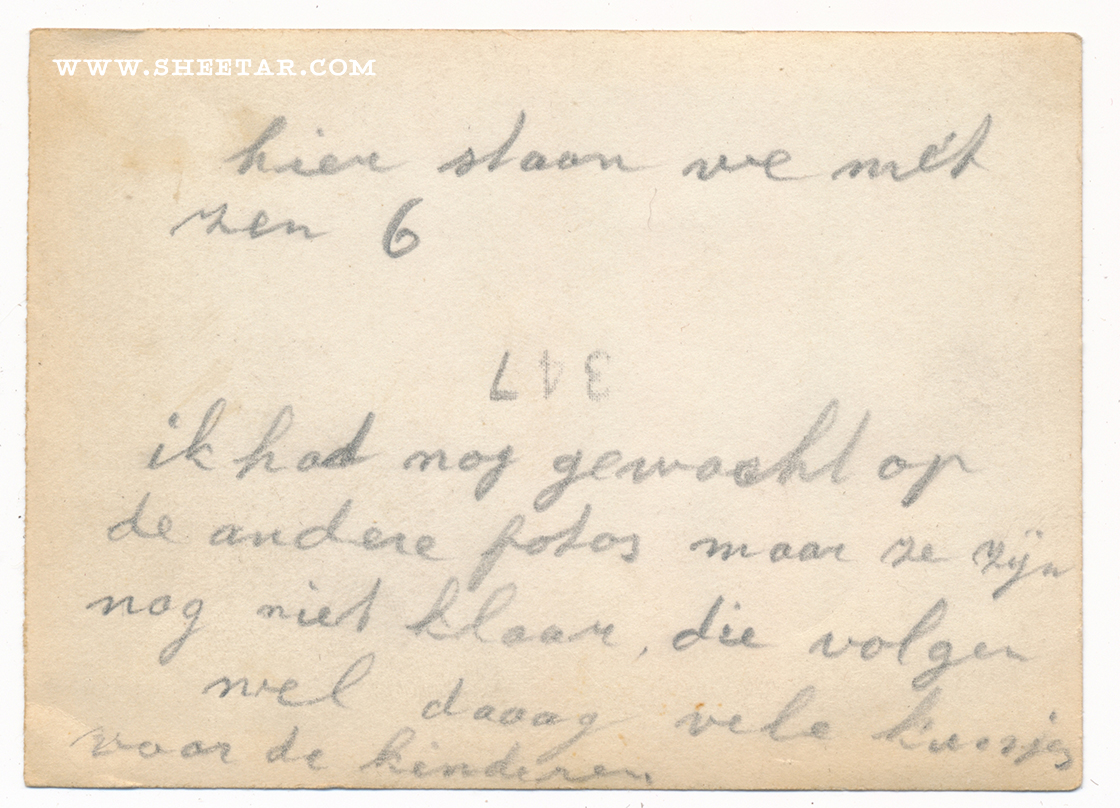 WWW.SHEETAR.COM
hier staan we mét
zen 6
347
ik had nog gewacht op
de andere fotos maar ze zijn
nog niet klaar, die volgen
wel daaag vele kusjes
voor de kinderen